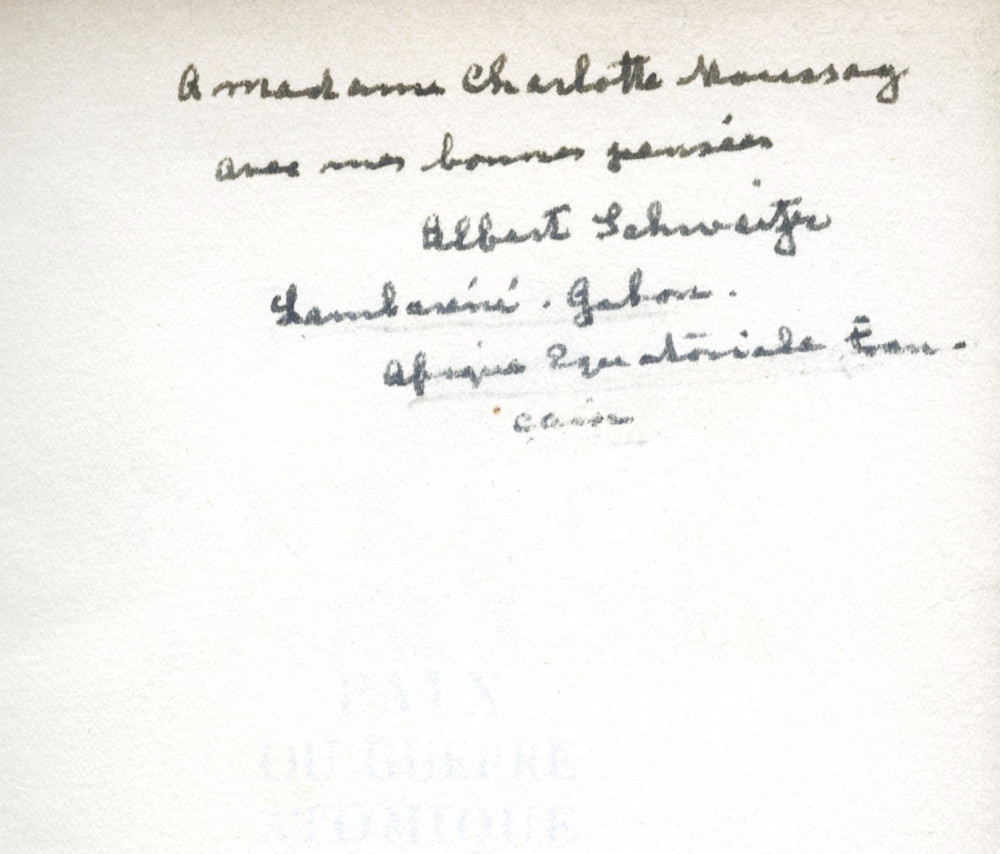 A Madame Charlotte Moussay
avec mes bonnes pensées
Albert Schweitzer
Lambaréné. Gabon.
Afrique Equatoriale
PAIX
OU GUERRE
ATOMIQUE